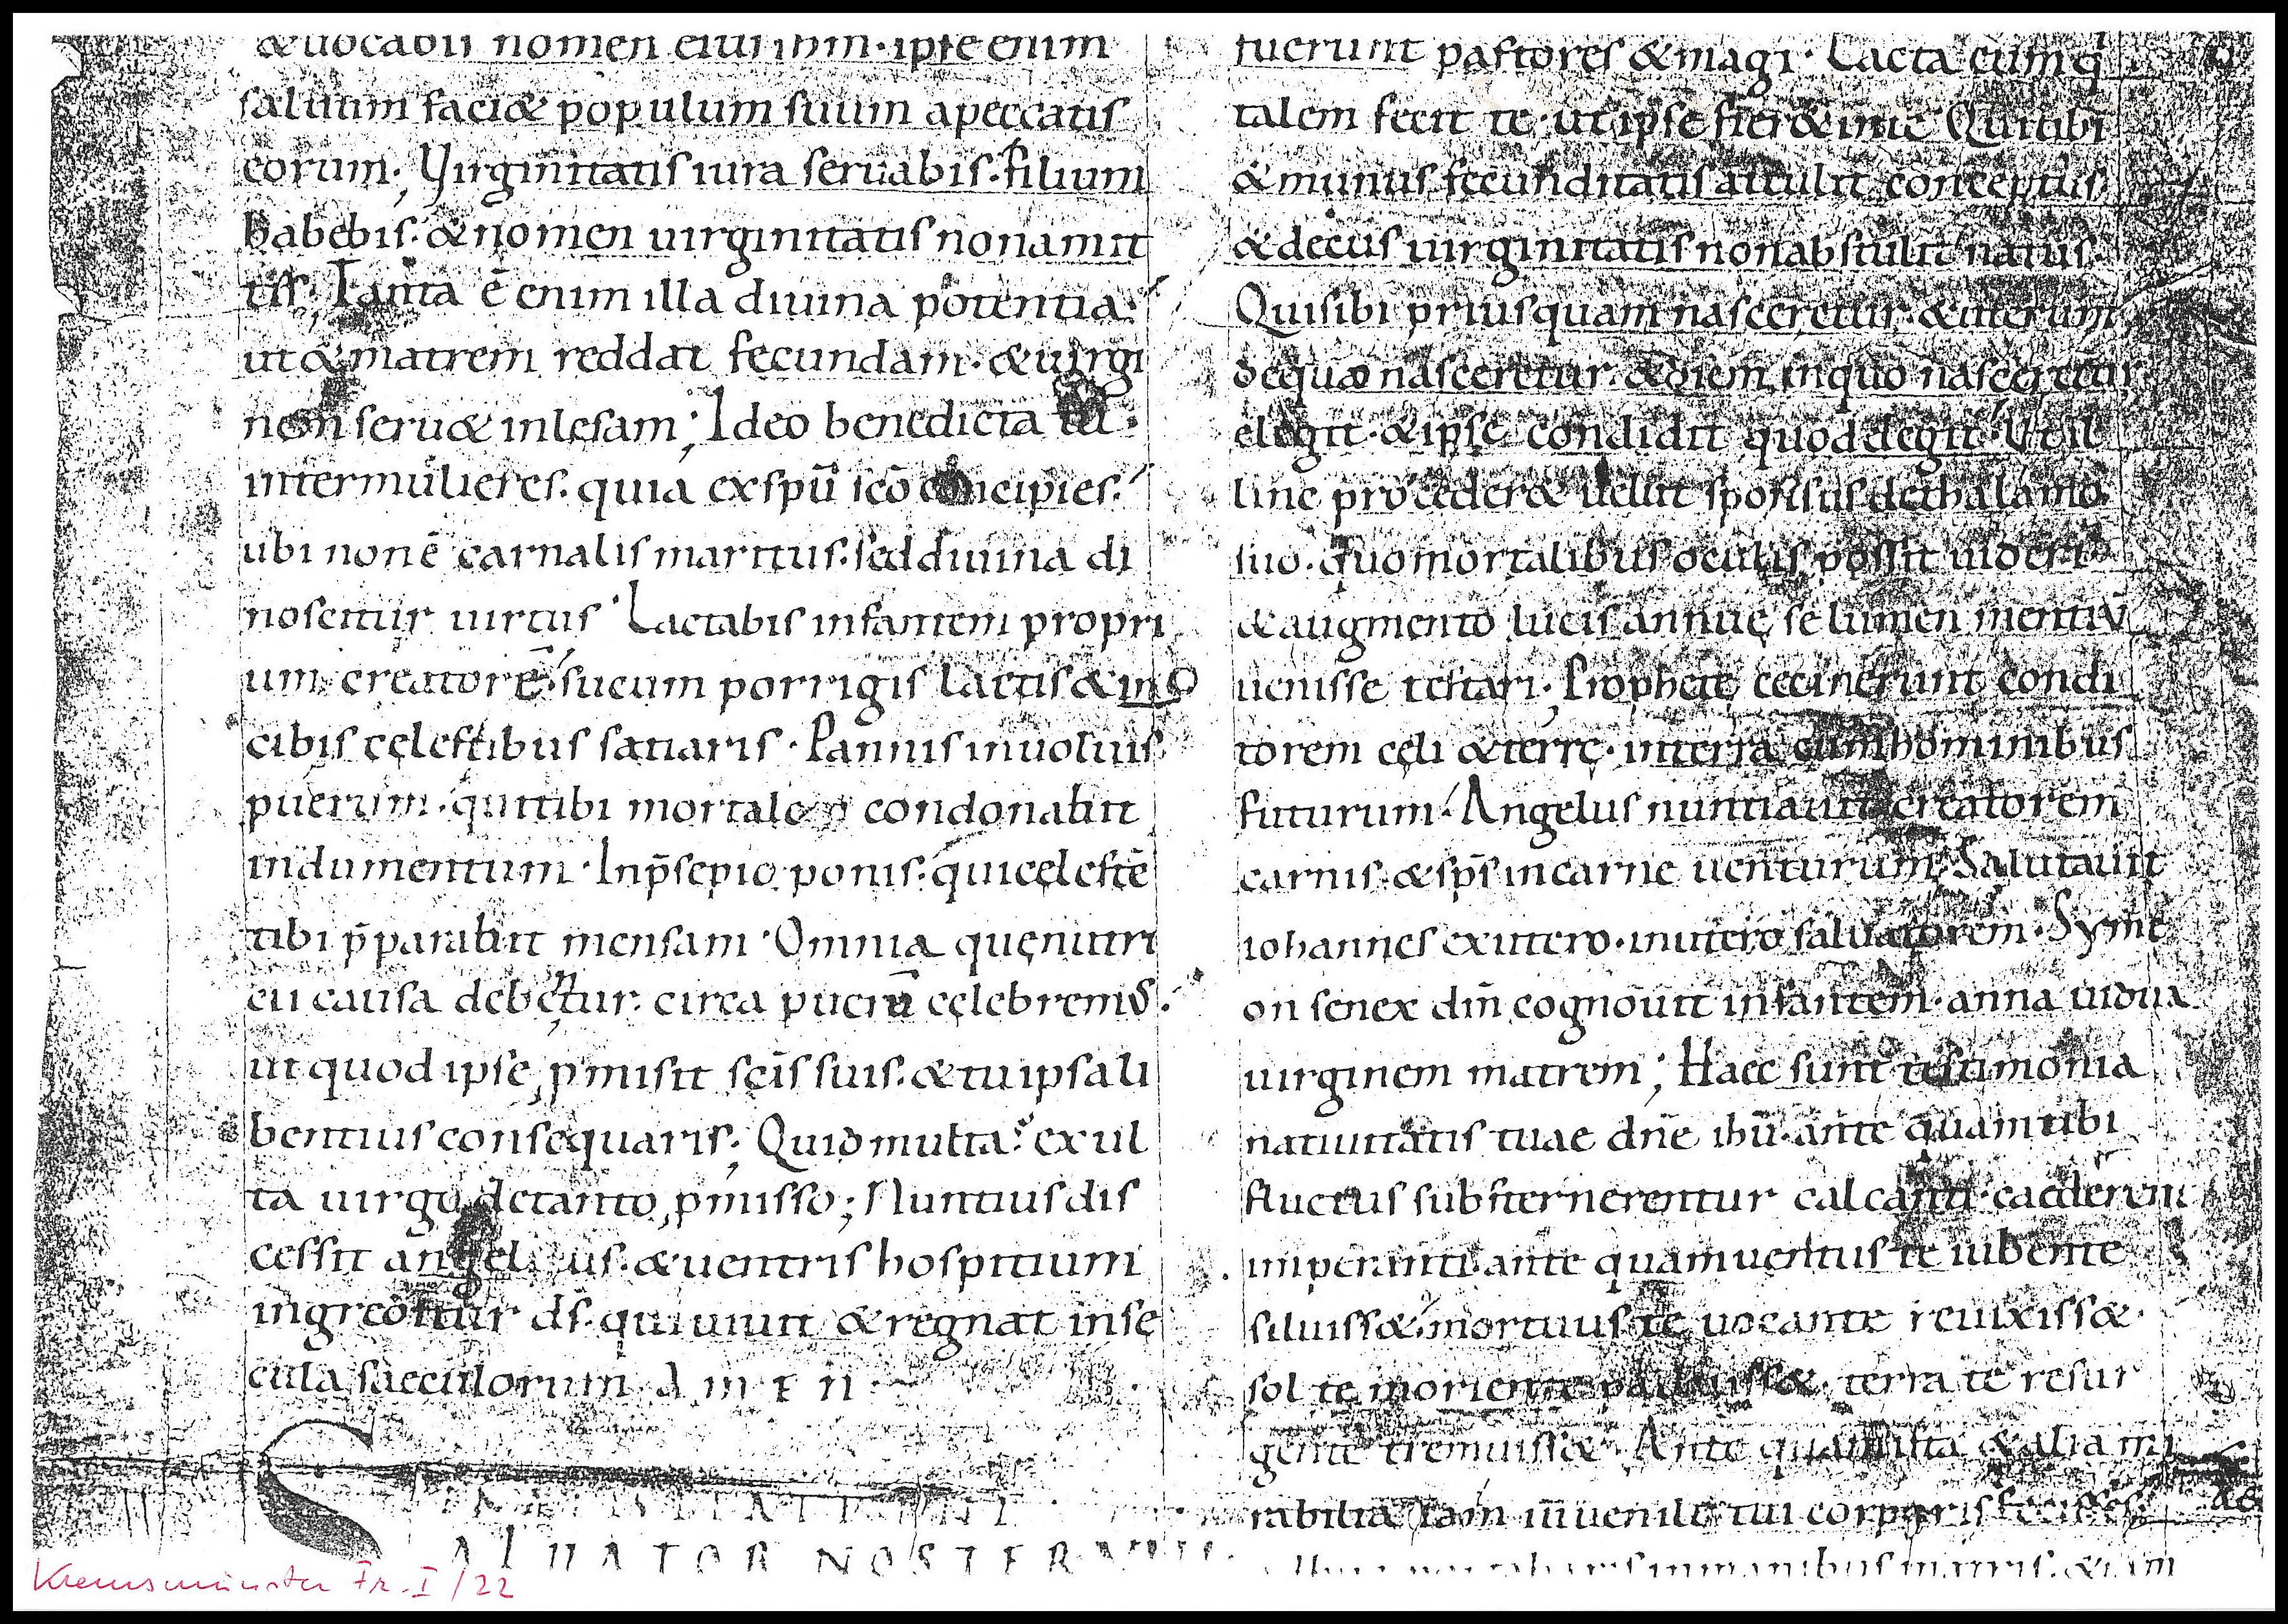 &uocabis nomen eius ihm· ipse enim
saluum faci& populum suum apeccatis
eorum; Virginitatis iura seruabis· filium
habebis· & nomen uirginitatis nonamit
tis· Tanta ē enim illa diuina potentia·
ut & matrem reddat fecundam· & uirgi
nem seru& inlesam; Ideo benedicta tu·
intermulieres· quia exspū scō concipies·
ubi nonē carnalis maritus· sed diuina di
noscitur uirtus· Lactabis infantem propri
um creatorē· sucum porrigis lactis & in
cibis cęlestibus satiaris· Pannis inuoluis
puerum· qui tibi mortale condonabit
indumentum· Inp̄sepio ponis· qui cęlestē
tibi p̄parabit mensam· Omnia quę nutri
cii causa debentur circa puerū celebrems·
ut quod ipse pmisit scīs suis· & tu ipsa li
bentius consequaris; Quid multa· exul
ta uirgo de tanto pmisso; Nuntius dis
cessit angelus· & uentris hospitium
ingreditur ds· qui uiuit & regnat in sę
cula saeculorum A m e n
S
ALUATOR NOSTER
fuerunt pastores & magi· Lacta eum q
talem fecit te· ut ipse fier& inte Qui tibi
& munus fecunditatis attulit conceptus
& decus uirginitatis nonabstulit natus·
Quisibi priusquam nasceretur· & uterum
de quo nasceretur· & diem inquo nasceretur
elegit· & ipse condidit quod elegit· Ut il
linc proceder& uelut sponsus de thalamo
suo· quo mortalibus oculis possit uideri
& augmento lucis annuę se lumen mentiū
uenisse testari; Prophetę cecinerunt condi
torem cęli & terrę· interra cum hominibus
futurum· Angelus nuntiauit creatorem
carnis· & spīs in carne uenturum· Salutauit
iohannes ex utero· in utero saluatorem· Syme
on senex dn̄m cognouit infantem· anna uidua
uirginem matrem; Haec sunt testimonia
natiuitatis tuae dn̄e ihū· ante quam tibi
fluctus substernerentur calcanti· caederent
imperanti· ante quam uentus te iubente
siluiss&· mortuus te uocante reuixiss&·
sol te moriente palluiss&· terra te resur
gente tremuiss&· Ante quam ista & alia mi
rabilia tam iuuenilis tui corporis fecisses
inmanibus matris· & iam
Kremsmünster Fr. I/22